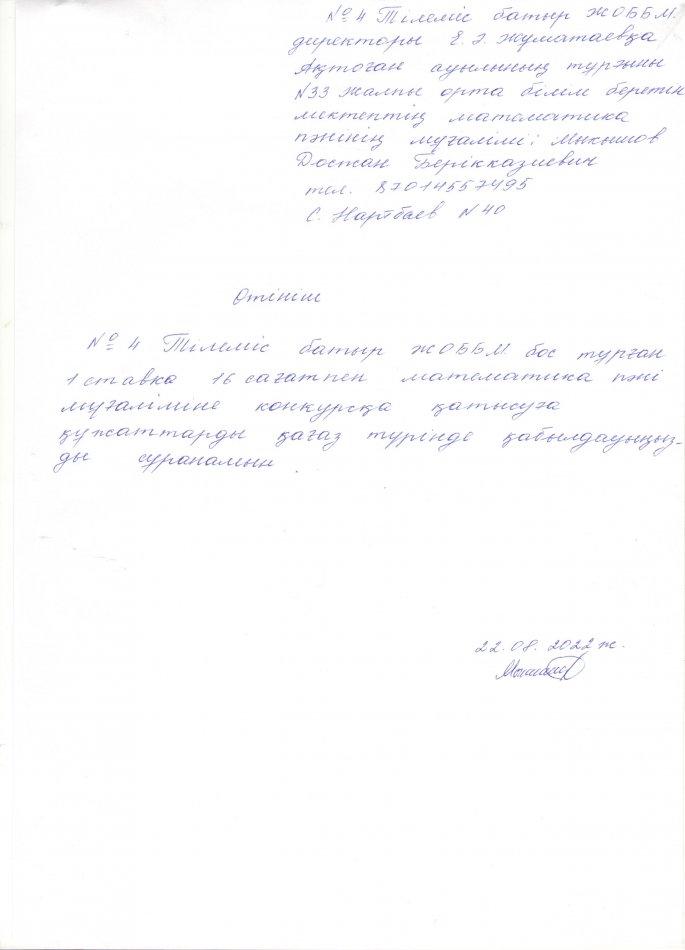 № 4 Тілеміс батыр ЖОББМ.
директоры Е. Э. Жуматаевқа
Ақтоған ауылының тұрғыны
N33 жалпы орта білім беретін
мектептің математика
пәнінің мұғалімі: Мыкышов
Достан Берікказиевич
тел. 87014557495
С. Нартбаев N 40
Өтініш
№ 4 Тілеміс батыр ЖОББМ. бос тұрған
1 ставка 16 сағатпен математика пәні
мұғаліміне конкурсқа қатысуға
құжаттарды қағаз түрінде қабылдауыңыз-
ды сұранамын.
22.08.2022 ж.